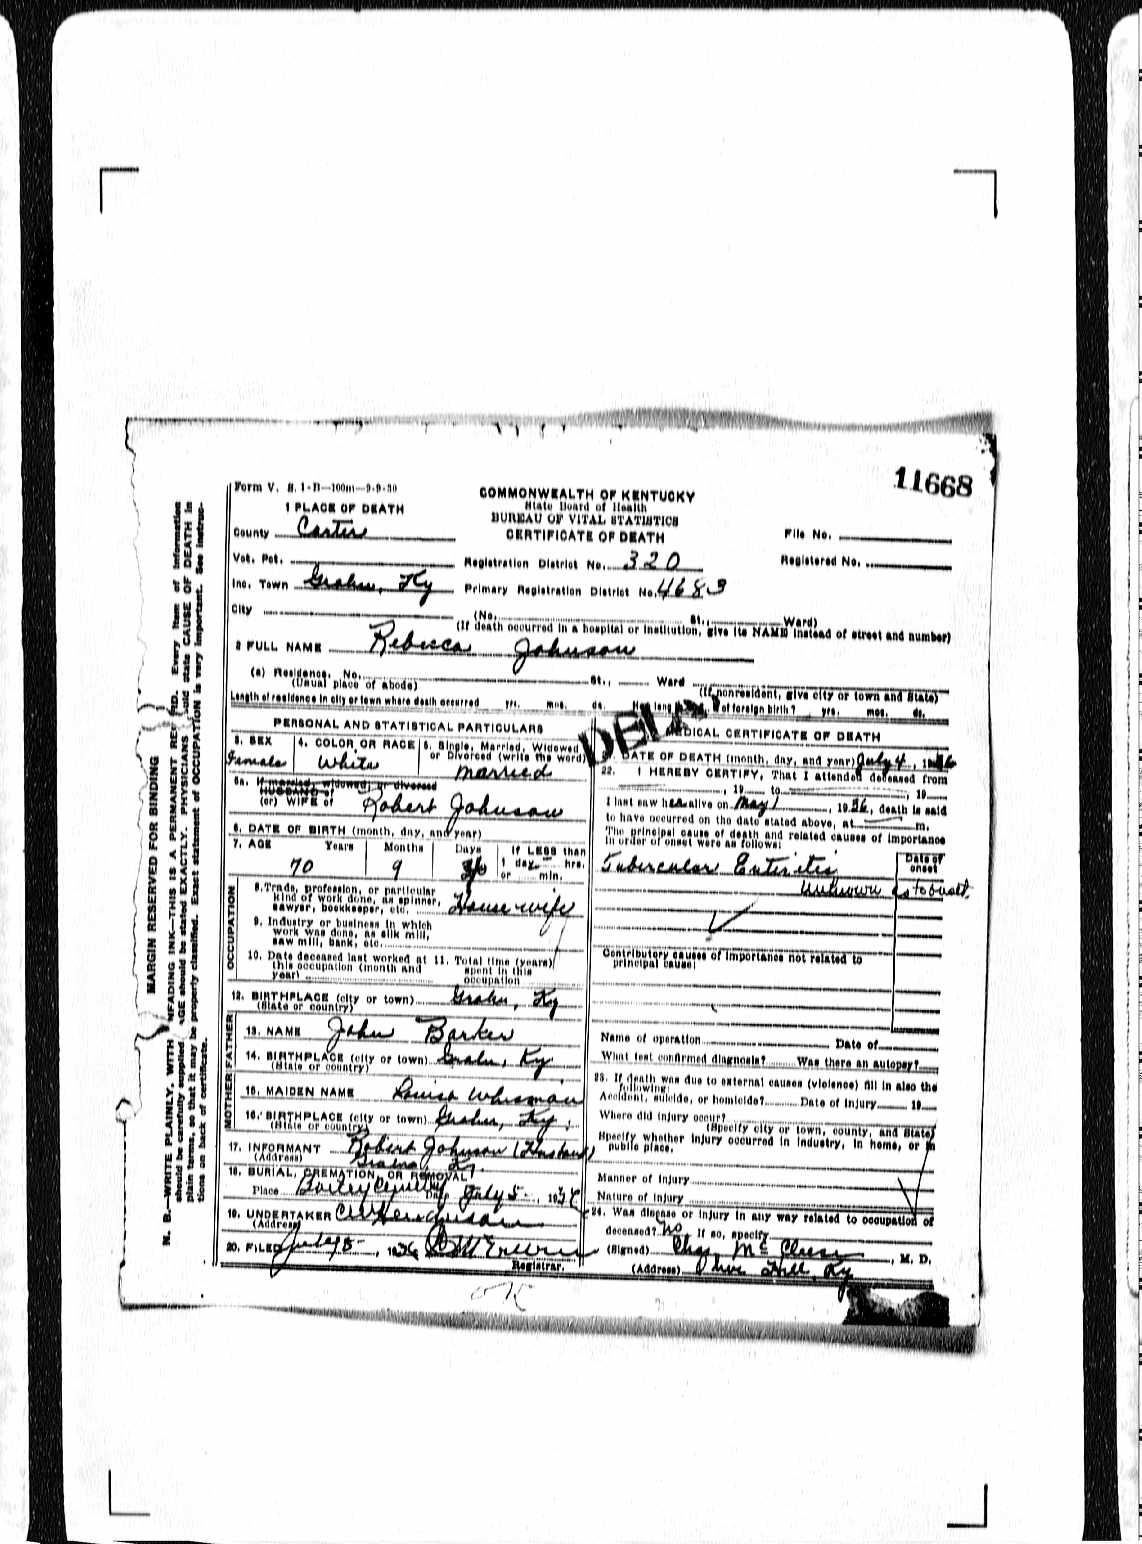 11668
Form V. S. 1-D—100m—9-9-30
COMMONWEALTH OF KENTUCKY
State Board of Health
BUREAU OF VITAL STATISTICS
CERTIFICATE OF DEATH
1 PLACE OF DEATH
County Carter
File No.
Vot. Pct.
Registration District No. 320
Registered No.
Inc. Town Grahn, Ky
Primary Registration District No. 4683
City
(No. St., Ward)
(If death occurred in a hospital or institution, give its NAME instead of street and number)
2 FULL NAME Rebecca Johnson
(a) Residence. No. St., Ward
(Usual place of abode)
(If nonresident, give city or town and State)
Length of residence in city or town where death occurred yrs. mos. ds. How long of foreign birth? yrs. mos. ds.
PERSONAL AND STATISTICAL PARTICULARS
3. SEX
Female
4. COLOR OR RACE
White
5. Single, Married, Widowed
or Divorced (write the word)
Married
5a. If married, widowed, or divorced
HUSBAND of
(or) WIFE of Robert Johnson
6. DATE OF BIRTH (month, day, and year)
7. AGE Years Months Days If LESS than
1 day hrs.
or min.
70 9
OCCUPATION
8. Trade, profession, or particular
kind of work done, as spinner,
sawyer, bookkeeper, etc. House wife
9. Industry or business in which
work was done, as silk mill,
saw mill, bank, etc.
10. Date deceased last worked at
this occupation (month and
year)
11. Total time (years)
spent in this
occupation
12. BIRTHPLACE (city or town) Grahn, Ky
(State or country)
FATHER
13. NAME John Barker
14. BIRTHPLACE (city or town) Grahn, Ky
(State or country)
MOTHER
15. MAIDEN NAME Louisa Whisman
16. BIRTHPLACE (city or town) Grahn, Ky
(State or country)
17. INFORMANT Robert Johnson (Husband)
(Address) Grahn, Ky.
18. BURIAL, CREMATION, OR REMOVAL
Place Date July 5, 1936
19. UNDERTAKER
(Address)
20. FILED July 8, 1936
Registrar.
MEDICAL CERTIFICATE OF DEATH
DATE OF DEATH (month, day, and year) July 4, 1936
22. I HEREBY CERTIFY, That I attended deceased from
, 19 to , 19
I last saw her alive on May 1, 1936, death is said
to have occurred on the date stated above, at m.
The principal cause of death and related causes of importance
in order of onset were as follows:
Date of
onset
Tubercular Enteritis
Unknown as to onset.
Contributory causes of importance not related to
principal cause:
Name of operation Date of
What test confirmed diagnosis? Was there an autopsy?
23. If death was due to external causes (violence) fill in also the
following:
Accident, suicide, or homicide? Date of injury 19
Where did injury occur?
(Specify city or town, county, and State)
Specify whether injury occurred in industry, in home, or in
public place.
Manner of injury
Nature of injury
24. Was disease or injury in any way related to occupation of
deceased? No If so, specify
(Signed) Chas. McCleese, M. D.
(Address) Olive Hill, Ky
MARGIN RESERVED FOR BINDING